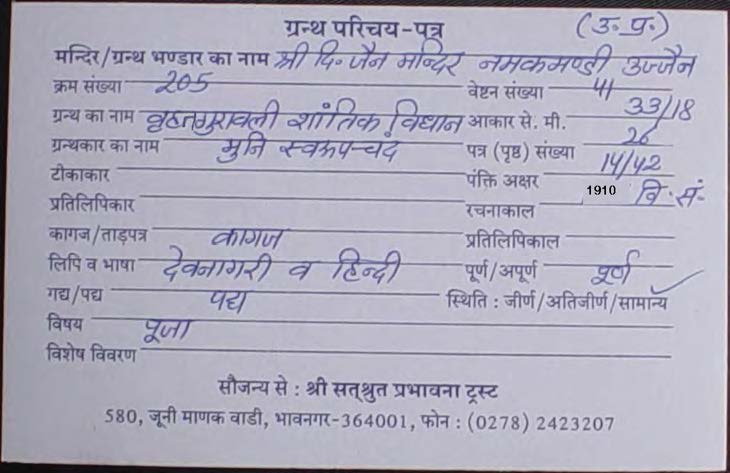 ग्रन्थ परिचय-पत्र (उ.प्र.)
मन्दिर/ग्रन्थ भण्डार का नाम श्री दि. जैन मन्दिर नमकमण्डी उज्जैन
क्रम संख्या 205 वेष्टन संख्या 41
ग्रन्थ का नाम वृहतगुरावली शांतिक विधान आकार से. मी. 33/18
ग्रन्थकार का नाम मुनि स्वरूपचंद पत्र (पृष्ठ) संख्या 26
टीकाकार पंक्ति अक्षर 14/42
प्रतिलिपिकार रचनाकाल 1910 वि. सं.
कागज/ताड़पत्र कागज प्रतिलिपिकाल
लिपि व भाषा देवनागरी व हिन्दी पूर्ण/अपूर्ण पूर्ण
गद्य/पद्य पद्य स्थिति : जीर्ण/अतिजीर्ण/सामान्य
विषय पूजा
विशेष विवरण
सौजन्य से : श्री सत्श्रुत प्रभावना ट्रस्ट
580, जूनी माणक वाडी, भावनगर-364001, फोन : (0278) 2423207